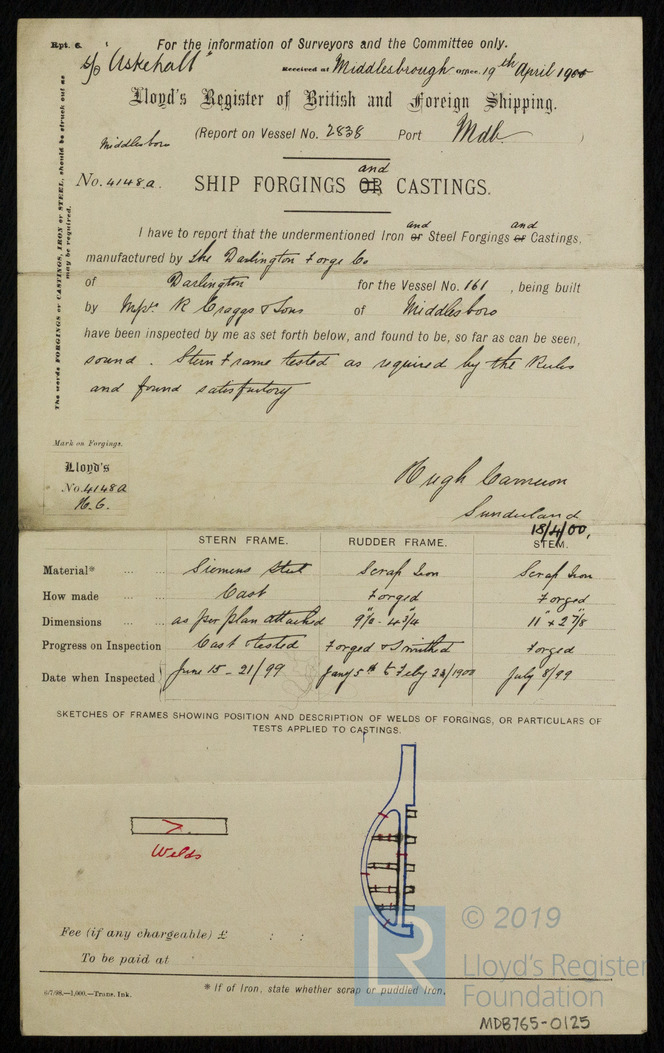 Rpt. 6.
For the information of Surveyors and the Committee only.
S/S "Askehall"
Received at Middlesbrough Office, 19th April 1900
Lloyd's Register of British and Foreign Shipping.
(Report on Vessel No. 2838 Port Mdb )
Middlesboro
No. 4148.a.
and
SHIP FORGINGS OR CASTINGS.
The words FORGINGS or CASTINGS, IRON or STEEL, should be struck out as
may be required.
and and
I have to report that the undermentioned Iron or Steel Forgings or Castings,
manufactured by The Darlington Forge Co
of Darlington for the Vessel No. 161, being built
by R Craggs & Sons of Middlesboro
have been inspected by me as set forth below, and found to be, so far as can be seen,
sound. Stern Frame tested as required by the Rules
and found satisfactory
Mark on Forgings.
Lloyd's
No. 4148a
H.C.
Hugh Cameron
Sunderland
18/4/00.
STERN FRAME. RUDDER FRAME. STEM.
Material* ... ... Siemens Steel Scrap Iron Scrap Iron
How made ... Cast Forged Forged
Dimensions ... ... as per plan attached 9½ - 4¾ 11" x 2⅞
Progress on Inspection Cast & tested Forged & Smithed Forged
Date when Inspected June 15 - 21/99 Jany 5th to Feby 23/1900 July 8/99
SKETCHES OF FRAMES SHOWING POSITION AND DESCRIPTION OF WELDS OF FORGINGS, OR PARTICULARS OF
TESTS APPLIED TO CASTINGS.
Welds
Fee (if any chargeable) £ : :
To be paid at
* If of Iron, state whether scrap or puddled Iron.
6/7/98.—1,000.—Trans. Ink.
© 2019
LR
Lloyd's Register
Foundation
MDB765-0125